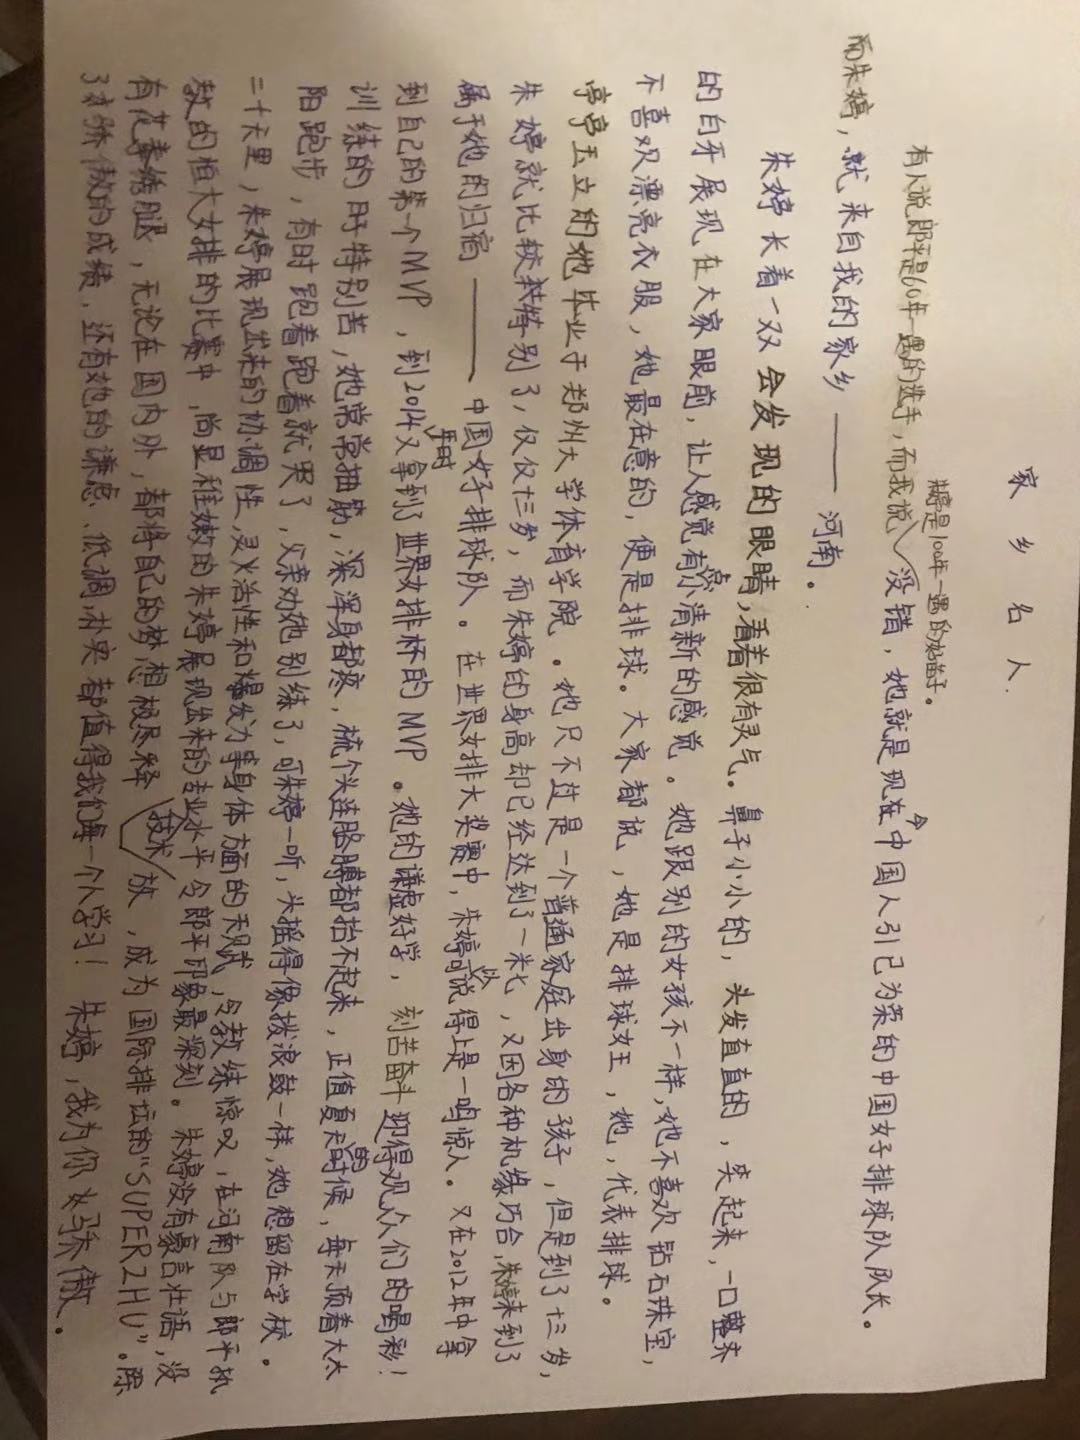 家乡名人.
有人说郎平是60年一遇的选手，而我说没错，她就是现在中国人引已为荣的中国女子排球队队长。
朱婷是100年一遇的好苗子。
今
而朱婷，就来自我的家乡——河南。
朱婷长着一双会发现的眼睛，看着很有灵气。鼻子小小的，头发直直的，笑起来，一口整齐
的白牙展现在大家眼前，让人感觉有小清新的感觉。她跟别的女孩不一样，她不喜欢钻石珠宝，
不喜欢漂亮衣服，她最在意的，便是排球。大家都说，她是排球女王，她，代表排球。
亭亭玉立的她毕业于郑州大学体育学院。她只不过是一个普通家庭出身的孩子，但是到了十三岁，
朱婷就比较特别了，仅仅十三岁，而朱婷的身高却已经达到了一米七，又因各种机缘巧合，朱婷来到了
属于她的归宿——中国女子排球队。在世界女排大奖赛中，朱婷可以说得上是一鸣惊人。又在2012年中拿
到自己的第一个MVP，到2014年时又拿到了世界女排杯的MVP。她的谦虚好学，刻苦奋斗迎得观众们的喝彩！
训练的日子特别苦，她常常抽筋，浑身都疼，梳个头连胳膊都抬不起来，正值夏天的时候，每天顶着大太
阳跑步，有时跑着跑着就哭了，父亲劝她别练了，可朱婷一听，头摇得像拨浪鼓一样，她想留在学校。
二十天里，朱婷展现出来的协调性，灵活性和爆发力等身体方面的天赋，令教练惊叹，在河南队与郎平执
教的恒大女排的比赛中，尚显稚嫩的朱婷展现出来的专业水平令郎平印象最深刻。朱婷没有豪言壮语，没
有花拳绣腿，无论在国内外，都将自己的梦想极尽释技术放，成为国际排坛的“SUPERZHU”。除
了有骄傲的成绩，还有她的谦虚、低调，朴实都值得我们每一个人学习！朱婷，我为你骄傲。